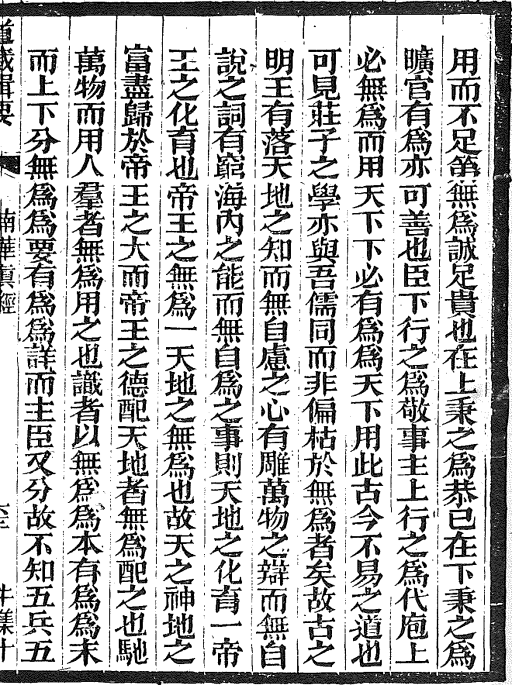 用而不足第無為誠足貴也在上秉之為恭己在下秉之為
曠官有為亦可善也臣下行之為敬事主上行之為代庖上
必無為而用天下下必有為為天下用此古今不易之道也
可見莊子之學亦與吾儒同而非偏枯於無為者矣故古之
明王有落天地之知而無自慮之心有雕萬物之辯而無自
說之詞有窮海內之能而無自為之事則天地之化育一帝
王之化育也帝王之無為一天地之無為也故天之神地之
富盡歸於帝王之大而帝王之德配天地者無為配之也馳
萬物而用人羣者無為用之也識者以無為為本有為為末
而上下分無為為要有為為詳而主臣又分故不知五兵五
道藏輯要
南華真經
牛集十